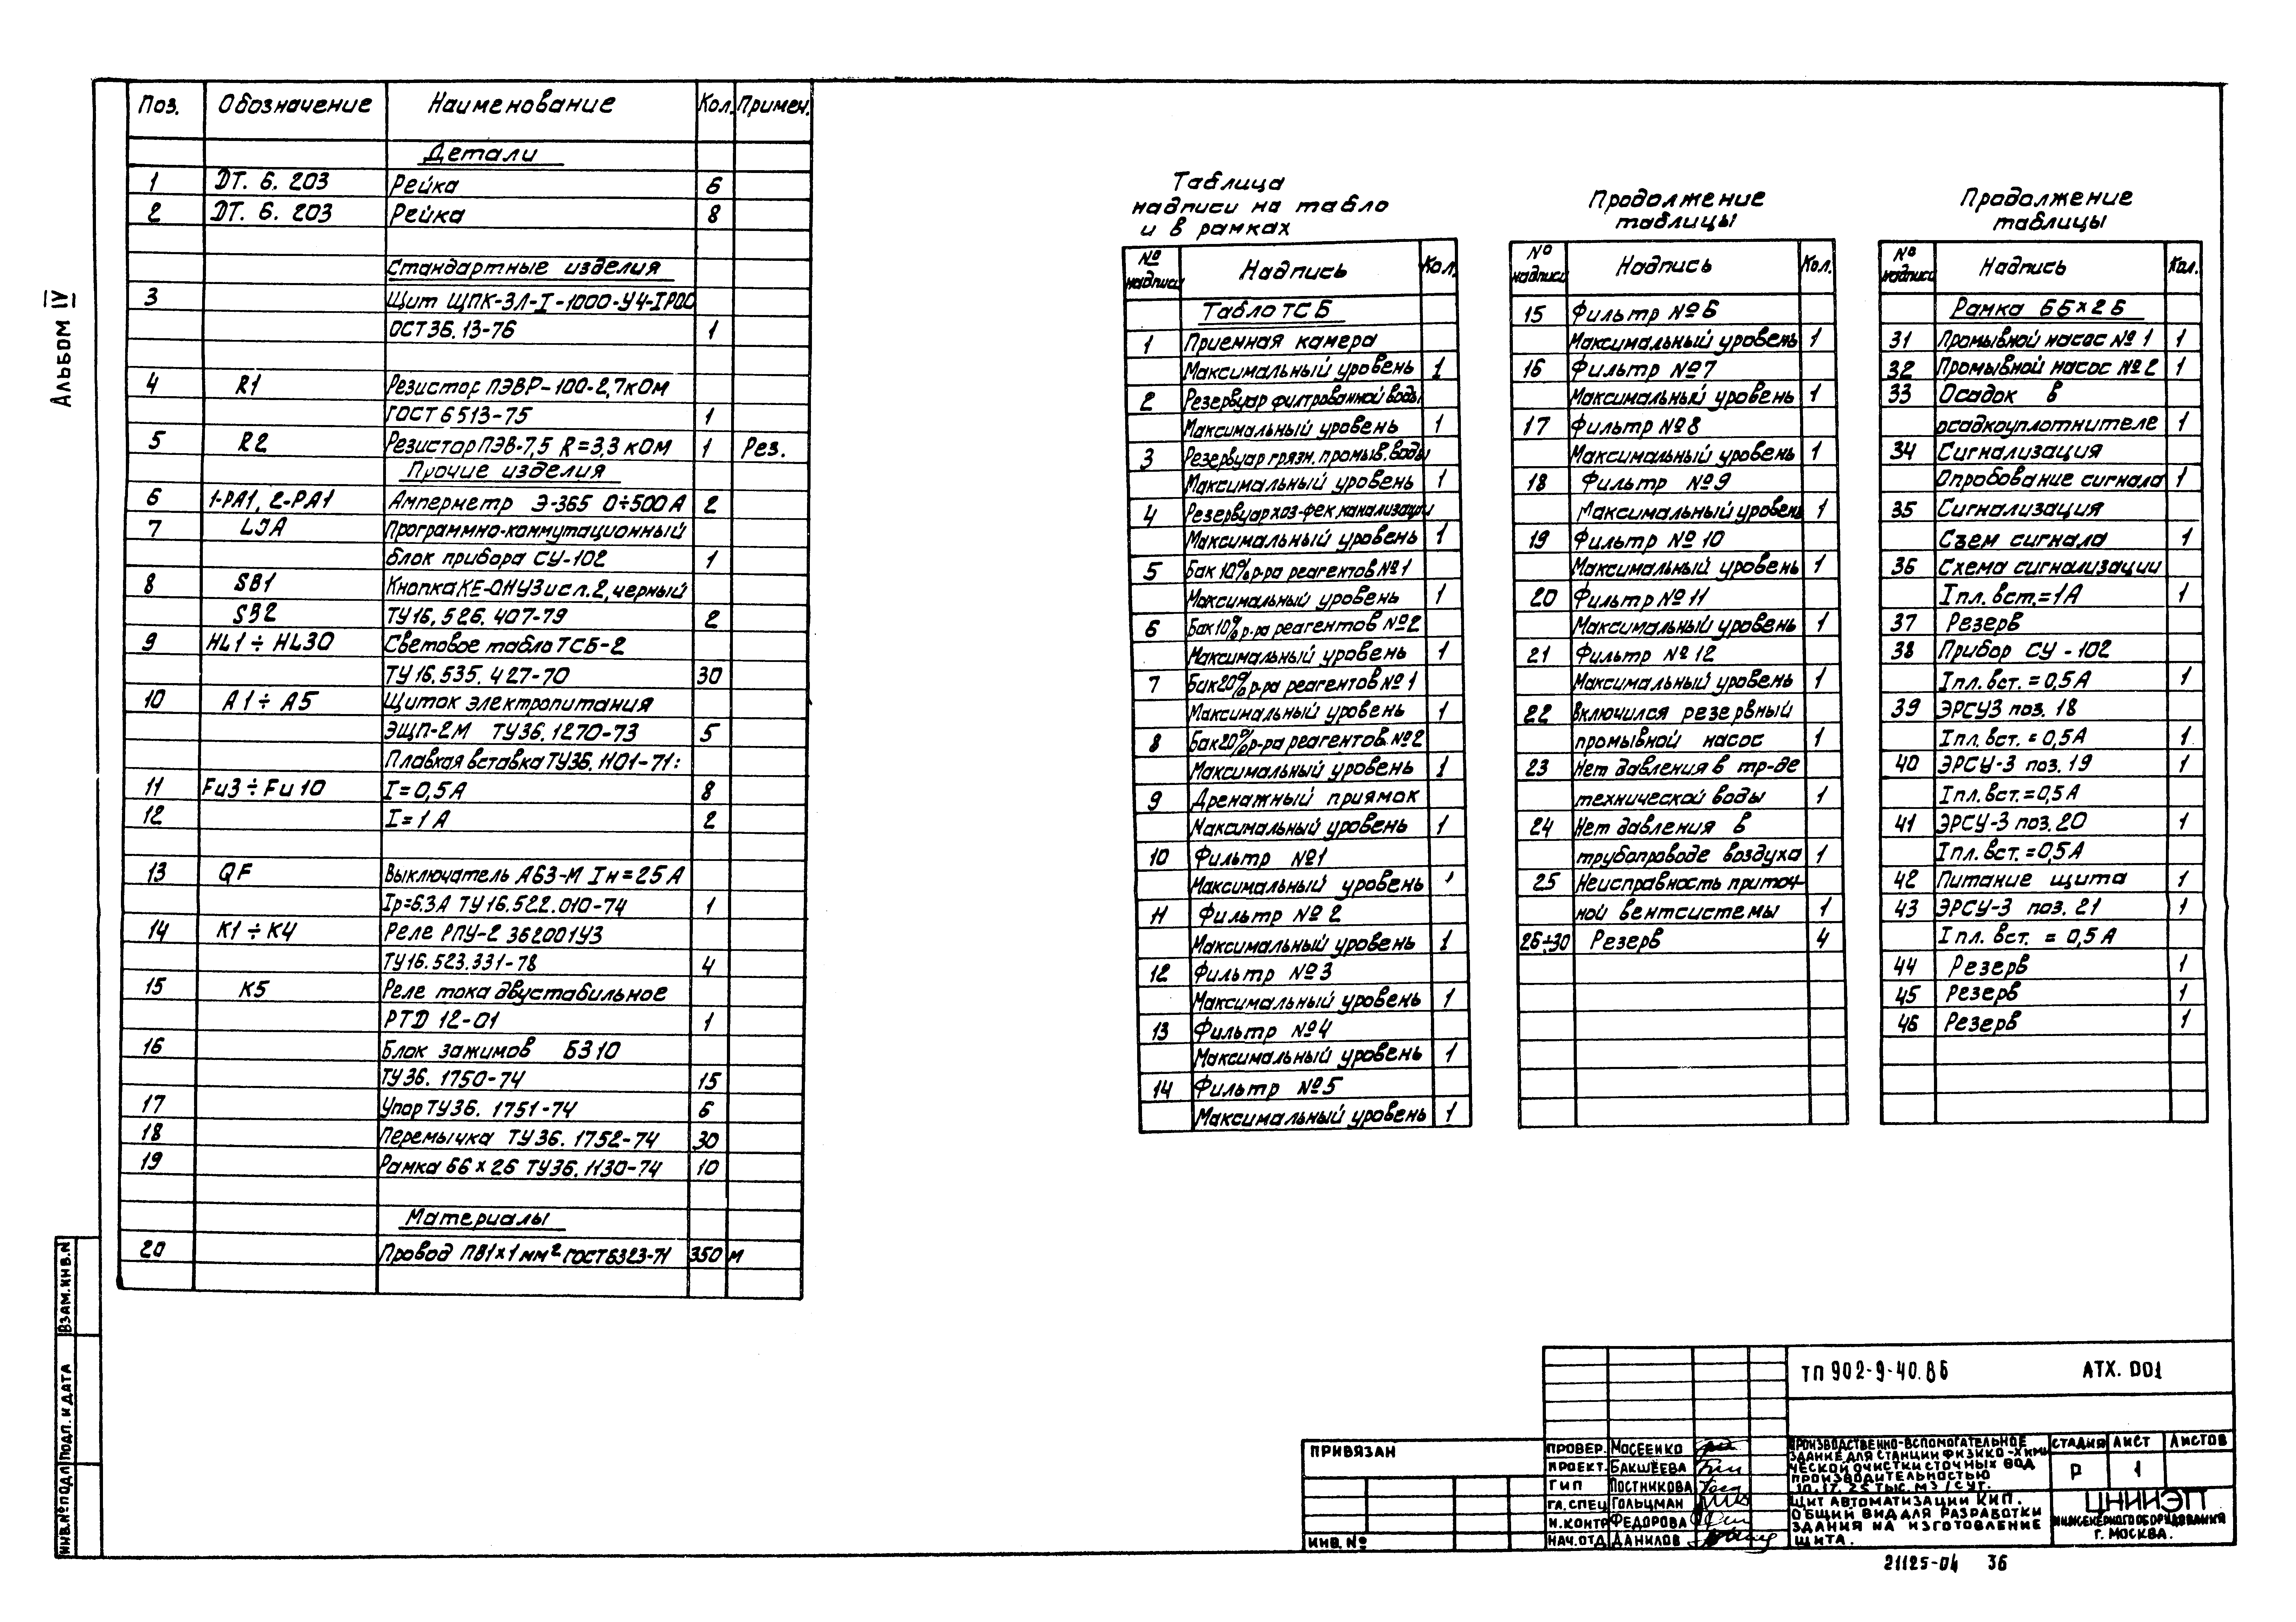 Альбом IV
Поз. Обозначение Наименование Кол. Примеч.
Детали
1 ДТ. 6. 203 Рейка 6
2 ДТ. 6. 203 Рейка 8
Стандартные изделия
3 Щит ЩПК-ЗЛ-I-1000-У4-IP00
ОСТ 36.13-76 1
4 R1 Резистор ПЭВР-100-2,7кОм
ГОСТ 6513-75 1
5 R2 Резистор ПЭВ-7,5 R=3,3 кОм 1 Рез.
Прочие изделия
6 1-PA1, 2-PA1 Амперметр Э-365 0÷500 А 2
7 Программно-коммутационный
блок прибора СУ-102 1
8 SB1 Кнопка КЕ-011У3 исп.2, черный
SB2 ТУ16. 526. 407-79 2
9 HL1 ÷ HL30 Световое табло ТСБ-2
ТУ 16.535. 427-70 30
10 А1 ÷ А5 Щиток электропитания
ЭЩП-2М ТУ36. 1270-73 5
Плавкая вставка ТУ36. 1101-71:
11 Fu3 ÷ Fu10 I=0,5А 8
12 I=1 А 2
13 QF Выключатель А63-М Iн=25 А
Iр=6.3А ТУ16.522.010-74 1
14 К1 ÷ К4 Реле РПУ-2 362001У3
ТУ16.523.331-78 4
15 К5 Реле тока двустабильное
РТД 12-01 1
16 Блок зажимов БЗ10
ТУ36. 1750-74 15
17 Упор ТУ36. 1751-74 6
18 Перемычка ТУ36. 1752-74 30
19 Рамка 66×26 ТУ36. 1130-74 10
Материалы
20 Провод ПВ1×1мм² ГОСТ6323-71 350 м
Таблица
надписи на табло
и в рамках
№ надписи Надпись Кол.
Табло ТСБ
1 Приемная камера
Максимальный уровень 1
2 Резервуар фильтрованной воды
Максимальный уровень 1
3 Резервуар грязн. промыв. воды
Максимальный уровень 1
4 Резервуар хоз-фек. канализации
Максимальный уровень 1
5 Бак 10% р-ра реагентов №1
Максимальный уровень 1
6 Бак 10% р-ра реагентов №2
Максимальный уровень 1
7 Бак 20% р-ра реагентов №1
Максимальный уровень 1
8 Бак 20% р-ра реагентов №2
Максимальный уровень 1
9 Дренажный приямок
Максимальный уровень 1
10 Фильтр №1
Максимальный уровень 1
11 Фильтр №2
Максимальный уровень 1
12 Фильтр №3
Максимальный уровень 1
13 Фильтр №4
Максимальный уровень 1
14 Фильтр №5
Максимальный уровень 1
Продолжение
таблицы
№ надписи Надпись Кол.
15 Фильтр №6
Максимальный уровень 1
16 Фильтр №7
Максимальный уровень 1
17 Фильтр №8
Максимальный уровень 1
18 Фильтр №9
Максимальный уровень 1
19 Фильтр №10
Максимальный уровень 1
20 Фильтр №11
Максимальный уровень 1
21 Фильтр №12
Максимальный уровень 1
22 Включился резервный
промывной насос 1
23 Нет давления в тр-де
технической воды 1
24 Нет давления в
трубопроводе воздуха 1
25 Неисправность приточ-
ной вентсистемы 1
26÷30 Резерв 4
Продолжение
таблицы
№ надписи Надпись Кол.
Рамка 66×26
31 Промывной насос №1 1
32 Промывной насос №2 1
33 Осадок в
осадкоуплотнителе 1
34 Сигнализация
Опробование сигнала 1
35 Сигнализация
Съем сигнала 1
36 Схема сигнализации
Iпл. вст.=1А 1
37 Резерв
38 Прибор СУ-102
Iпл. вст. = 0,5 А 1
39 ЭРСУ3 поз. 18
Iпл. вст. = 0,5 А 1
40 ЭРСУ-3 поз. 19 1
Iпл. вст. =0,5 А
41 ЭРСУ-3 поз. 20 1
Iпл. вст. =0,5 А
42 Питание щита 1
43 ЭРСУ-3 поз. 21 1
Iпл. вст. = 0,5 А
44 Резерв 1
45 Резерв 1
46 Резерв 1
ИНВ.№ПОДЛ ПОДП. И ДАТА ВЗАМ.ИНВ.№
ПРИВЯЗАН
ИНВ. №
ТП 902-9-40.86 АТХ. D01
ПРОВЕР. МОСЕЕНКО
ПРОЕКТ. БАКШЕЕВА
ГИП ПОСТНИКОВА
ГЛ. СПЕЦ ГОЛЬЦМАН
Н.КОНТР ФЕДОРОВА
НАЧ.ОТД ДАНИЛОВ
ПРОИЗВОДСТВЕННО-ВСПОМОГАТЕЛЬНОЕ
ЗДАНИЕ ДЛЯ СТАНЦИИ ФИЗИКО-ХИМИ
ЧЕСКОЙ ОЧИСТКИ СТОЧНЫХ ВОД
ПРОИЗВОДИТЕЛЬНОСТЬЮ
10, 17, 25 ТЫС. М3/СУТ.
ЩИТ АВТОМАТИЗАЦИИ КИП.
ОБЩИЙ ВИД ДЛЯ РАЗРАБОТКИ
ЗДАНИЯ НА ИЗГОТОВЛЕНИЕ
ЩИТА.
СТАДИЯ ЛИСТ ЛИСТОВ
Р 1
ЦНИИЭП
ИНЖЕНЕРНОГО ОБОРУДОВАНИЯ
Г. МОСКВА.
21125-04 36